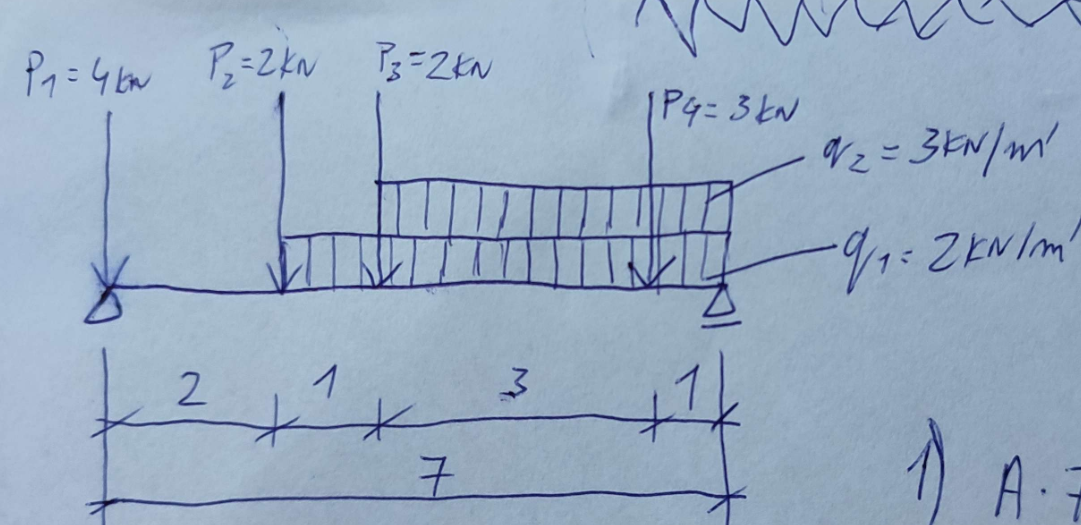 P1 = 4kN
P2 = 2kN
P3 = 2kN
P4 = 3kN
q2 = 3kN/m'
q1 = 2kN/m'
2 1 3 1
7
1) A · 7